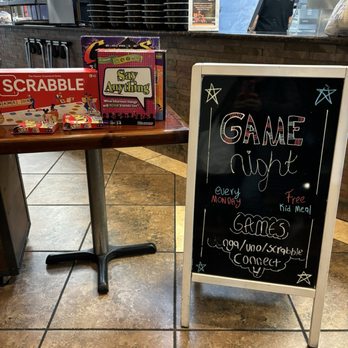 SCRABBLE
Say
Anything
GAME
night
every
MONDAY
Free
Kid Meal
GAMES
Jenga/uno/Scrabble
Connect 4